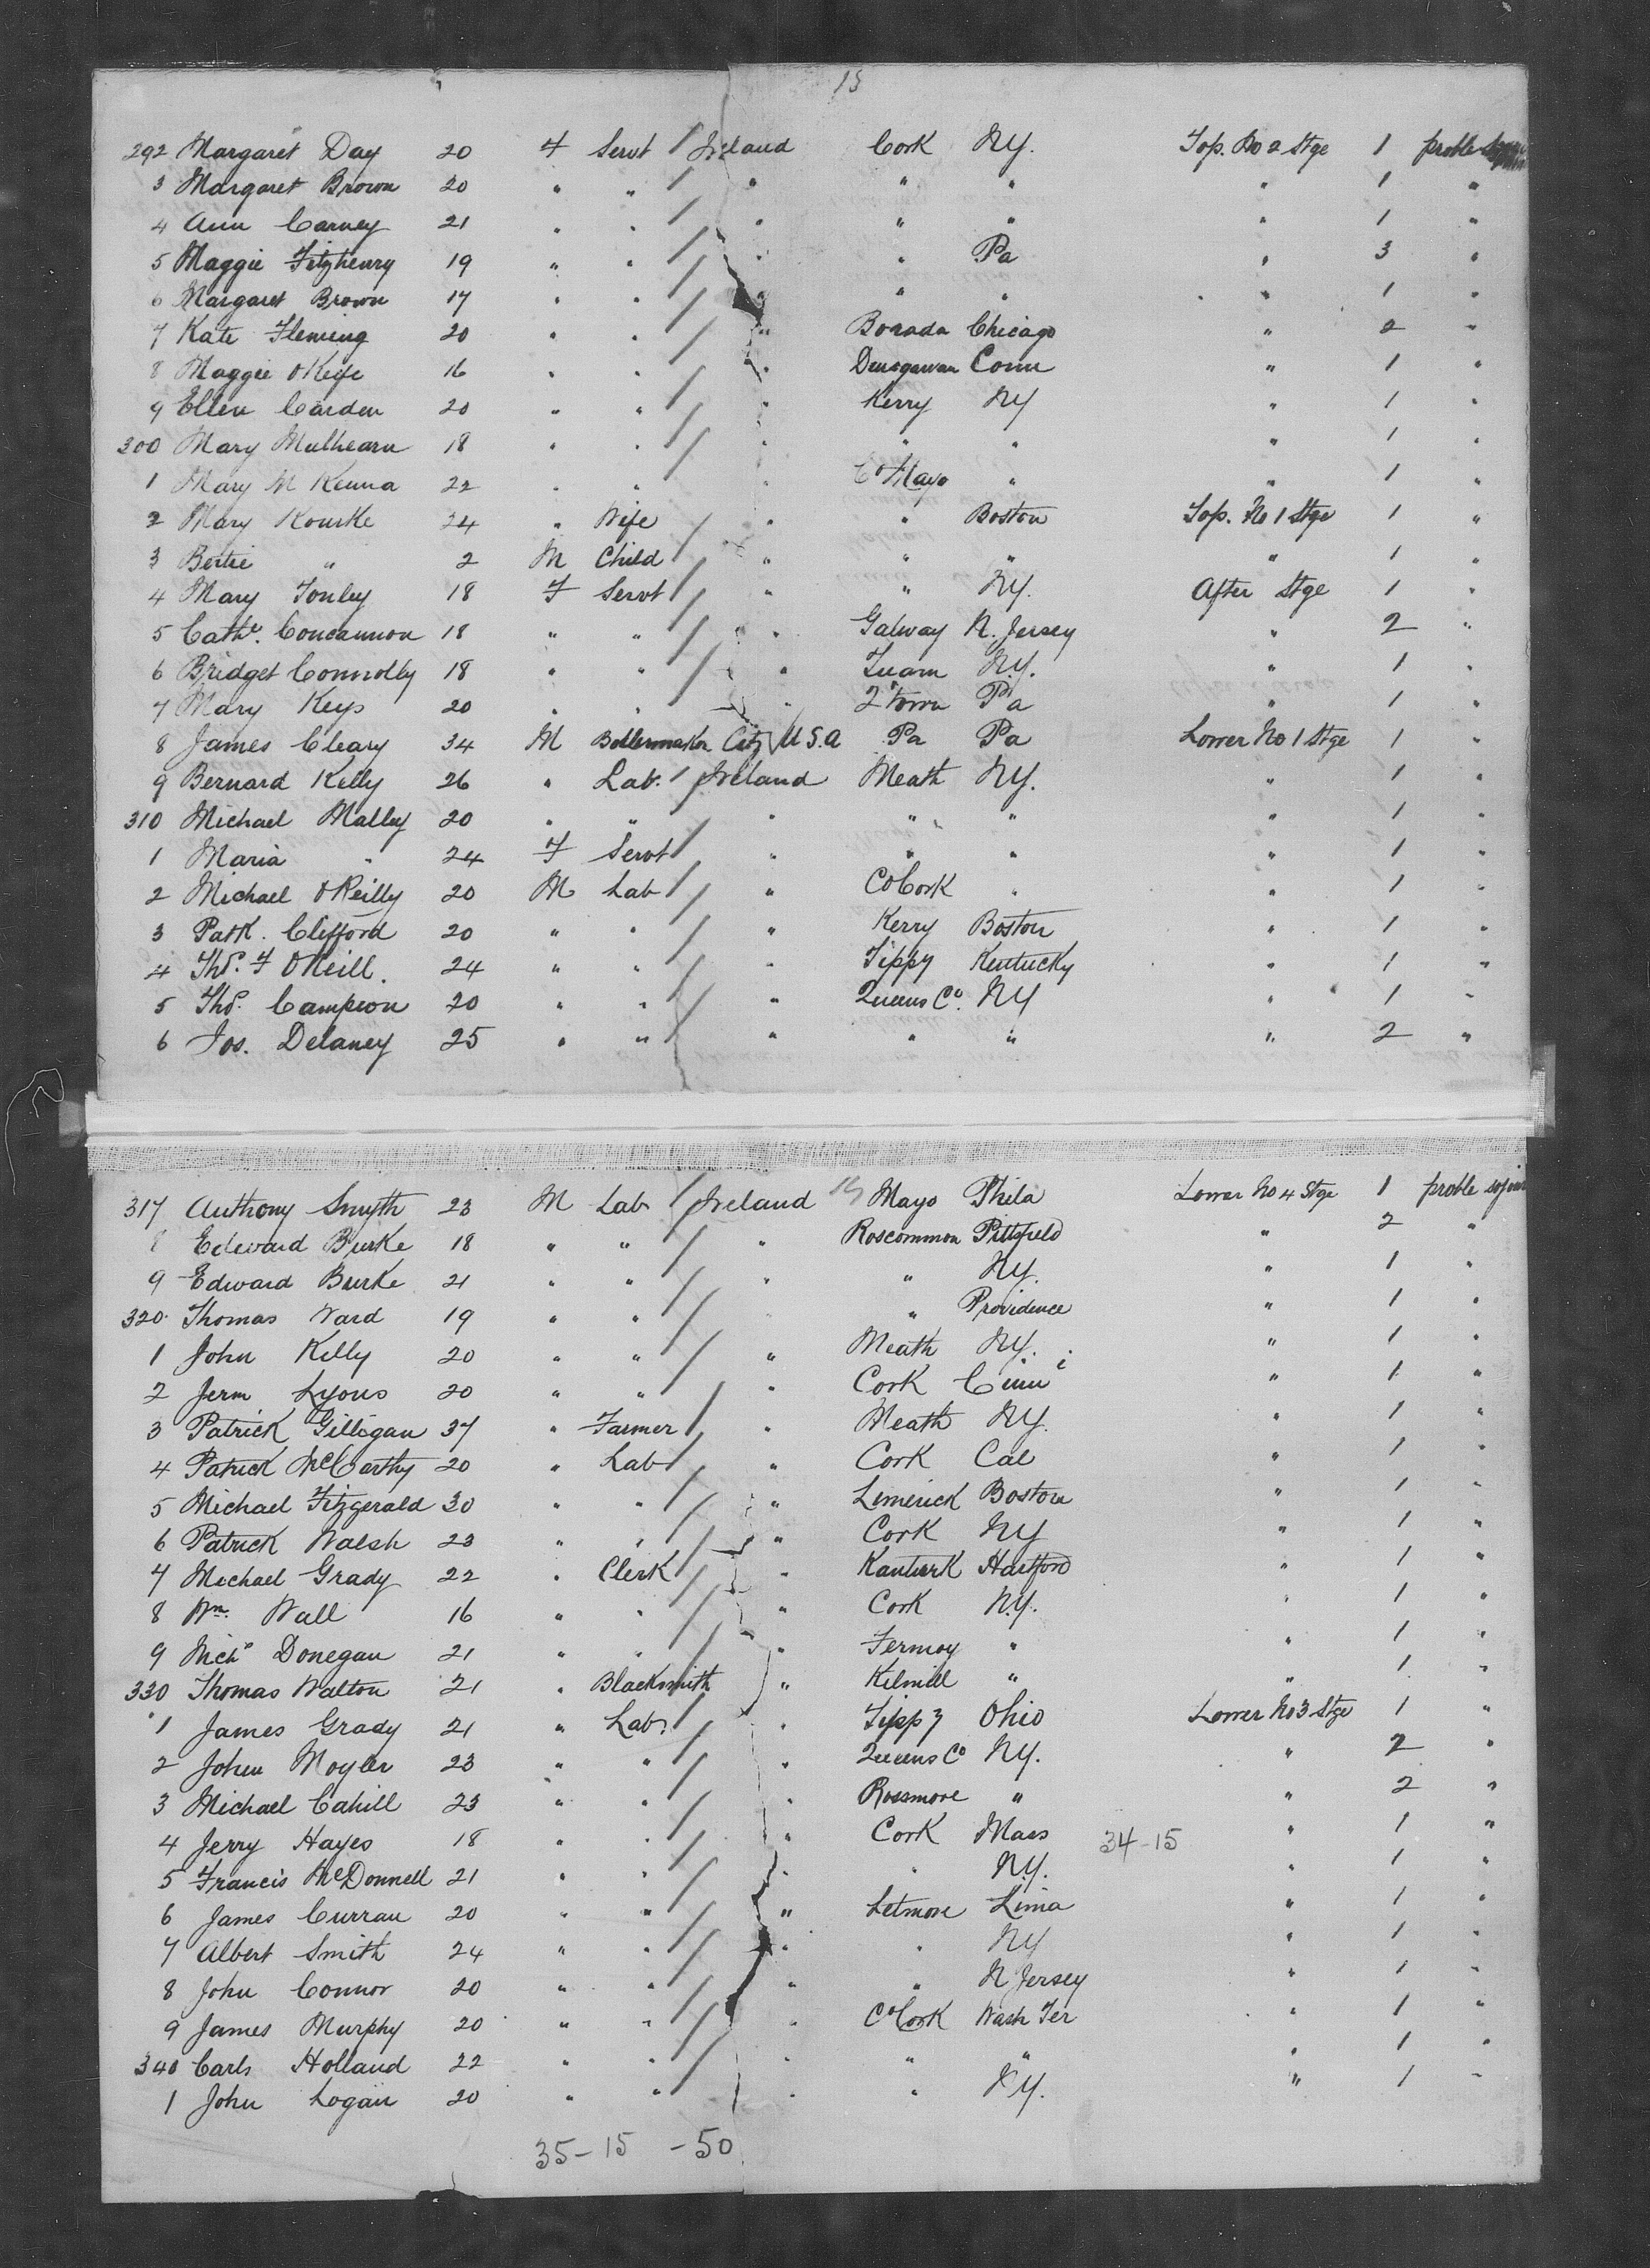 15
292 Margaret Day 20 F Servt / Ireland Cork N.Y. Top. No 2 Stge 1 proble
3 Margaret Brown 20 " " / " " " " 1 "
4 Ann Carney 21 " " / " " " " 1 "
5 Maggie Fitzhenry 19 " " / " " Pa " 3 "
6 Margaret Brown 17 " " / " " " " 1 "
7 Kate Fleming 20 " " / " Chicago " 2 "
8 Maggie OKeife 16 " " / " Dungarvan Conn " 1 "
9 Ellen Carden 20 " " / " Kerry NY " 1 "
300 Mary Mulhearn 18 " " / " " " " 1 "
1 Mary McKenna 22 " " / " Co Mayo " " 1 "
2 Mary Rourke 24 " Wife / " " Boston Top. No 1 Stge 1 "
3 Bertie " 2 M Child / " " " " 1 "
4 Mary Tonley 18 F Servt / " " N.Y. After Stge 1 "
5 Cathe. Concannon 18 " " / " Galway N. Jersey " 2 "
6 Bridget Connolly 18 " " / " Tuam N.Y. " 1 "
7 Mary Keys 20 " " / " Q Town Pa " 1 "
8 James Cleary 34 M Boilermaker Citz / U.S.A Pa Pa Lower No 1 Stge 1 "
9 Bernard Kelly 26 " Lab. / Ireland Meath N.Y. " 1 "
310 Michael Malley 20 " " / " " " " 1 "
1 Maria " 24 F Servt / " " " " 1 "
2 Michael OReilly 20 M Lab / " Co Cork " " 1 "
3 Patk. Clifford 20 " " / " Kerry Boston " 1 "
4 Thos. F ONeill. 24 " " / " Tippy Kentucky " 1 "
5 Thos. Campion 20 " " / " Queens Co. NY " 1 "
6 Jos. Delaney 25 " " / " " " " 2 "
317 Anthony Smyth 23 M Lab / Ireland Mayo Phila Lower No 4 Stge 1 proble sojourn
8 Edward Burke 18 " " / " Roscommon Pittsfield " 2 "
9 Edward Burke 21 " " / " " N.Y. " 1 "
320 Thomas Ward 19 " " / " " Providence " 1 "
1 John Kelly 20 " " / " Meath N.Y. " 1 "
2 Jerm Lyons 20 " " / " Cork Cinni " 1 "
3 Patrick Gilligan 37 " Farmer / " Meath N.Y. " 1 "
4 Patrick McCarthy 20 " Lab / " Cork Cal " 1 "
5 Michael Fitzgerald 30 " " / " Limerick Boston " 1 "
6 Patrick Walsh 23 " " / " Cork NY " 1 "
7 Michael Grady 22 " Clerk / " Kanturk Hartford " 1 "
8 Wm. Wall 16 " " / " Cork N.Y. " 1 "
9 Michl Donegan 21 " " / " Fermoy " " 1 "
330 Thomas Walton 21 " Blacksmith / " Kilmill " " 1 "
1 James Grady 21 " Lab. / " Tippy Ohio Lower No 3 Stge 1 "
2 John Moyler 23 " " / " Queens Co N.Y. " 2 "
3 Michael Cahill 23 " " / " Rossmore " " 2 "
4 Jerry Hayes 18 " " / " Cork Mass 34-15 " 1 "
5 Francis McDonnell 21 " " / " " N.Y. " 1 "
6 James Curran 20 " " / " Letmore Lima " 1 "
7 Albert Smith 24 " " / " " NY " 1 "
8 John Connor 20 " " / " " N Jersey " 1 "
9 James Murphy 20 " " / " Co Cork Wash Ter " 1 "
340 Carls Holland 22 " " / " " " " 1 "
1 John Logan 20 " " " " N.Y. " 1 "
35-15 -50